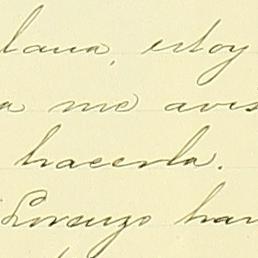 lana, estoy
a me avis
hacerla.
Lorenzo han